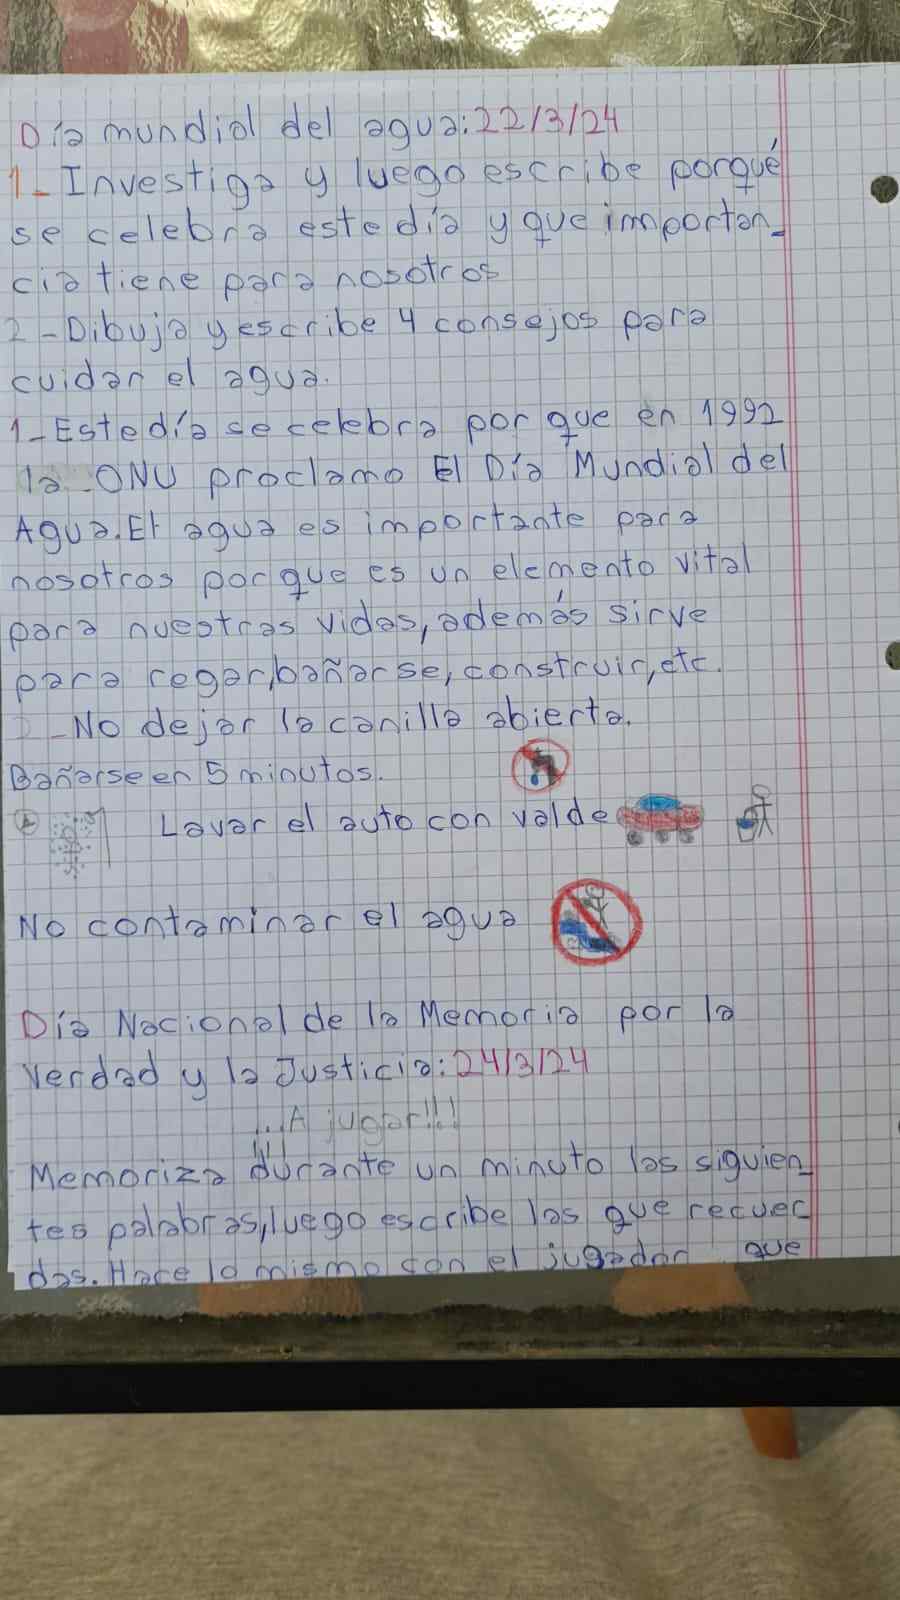 Día mundial del agua: 22/3/24
1- Investiga y luego escribe porqué
se celebra este día y que importan_
cia tiene para nosotros
2-Dibuja y escribe 4 consejos para
cuidar el agua.
1-Este día se celebra por que en 1992
la ONU proclamo El Día Mundial del
Agua. El agua es importante para
nosotros porque es un elemento vital
para nuestras vidas, además sirve
para regar, bañarse, construir, etc.
2-No dejar la canilla abierta.
Bañarse en 5 minutos.
Lavar el auto con valde
No contaminar el agua
Día Nacional de la Memoria por la
Verdad y la Justicia: 24/3/24
...A jugar!!!
Memoriza durante un minuto las siguien_
tes palabras, luego escribe las que recuer
das. Hace lo mismo con el jugador que